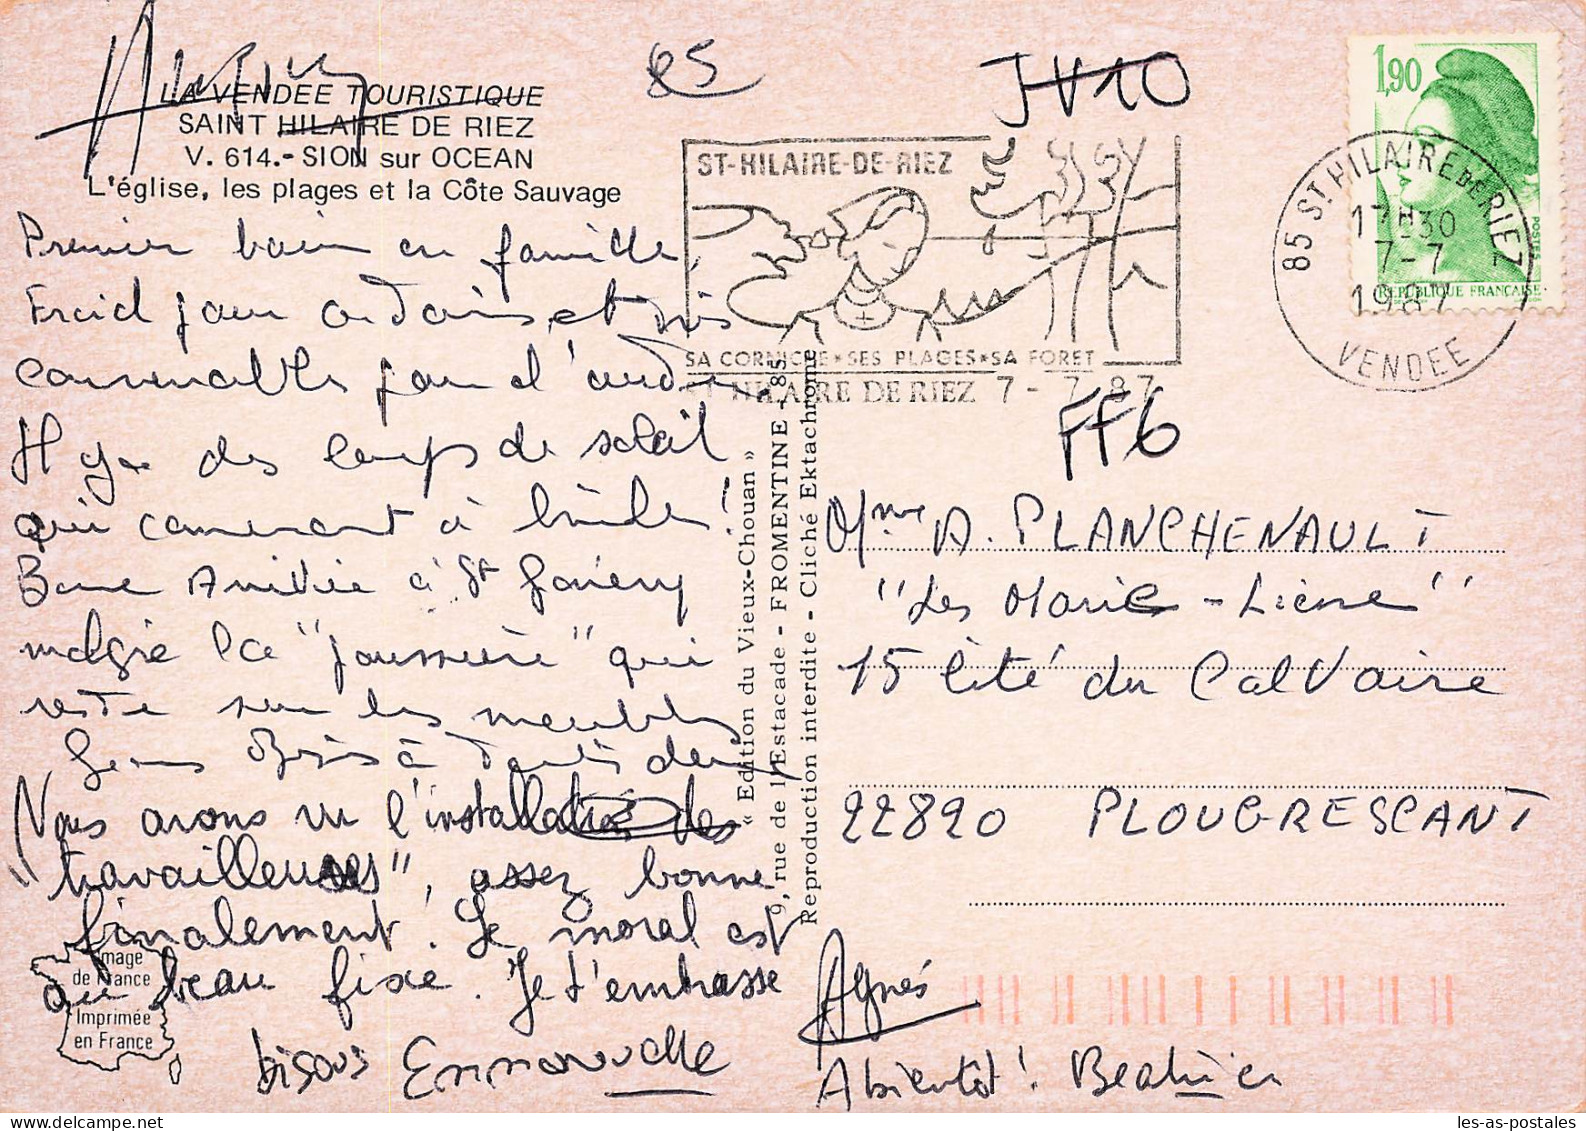 85
JV10
LA VENDEE TOURISTIQUE
SAINT HILAIRE DE RIEZ
V. 614.- SION sur OCEAN
L'église, les plages et la Côte Sauvage
Premier bain en famille,
Froid pour et très
convenable pour d'
Il y a des coups de soleil
qui commencent à brûler !
Bonne Arrivée à St
malgré la "poussière" qui
reste sur les meubles
Gros Bisous à toutes deux
Nous avons vu l'installation des
"travailleuses", assez bonne
finalement ! Le moral est
au beau fixe. Je t'embrasse
Agnès
bisous Emmanuelle
Abientôt ! Béatrice
ST-HILAIRE-DE-RIEZ
SA CORNICHE * SES PLAGES * SA FORET
ST HILAIRE DE RIEZ 7 - 7. 87
FF6
85 ST HILAIRE DE RIEZ
17H30
7-7
1987
VENDEE
1,90
POSTES
REPUBLIQUE FRANÇAISE
Mme A. PLANCHENAULT
"Les Marie-Liene"
15 Cité du Calvaire
22820 PLOUGRESCANT
« Edition du Vieux-Chouan »
9, rue de l'Estacade - FROMENTINE - 85
Reproduction interdite - Cliché Ektachrome
Image
de France
Imprimée
en France
les-as-postales.com